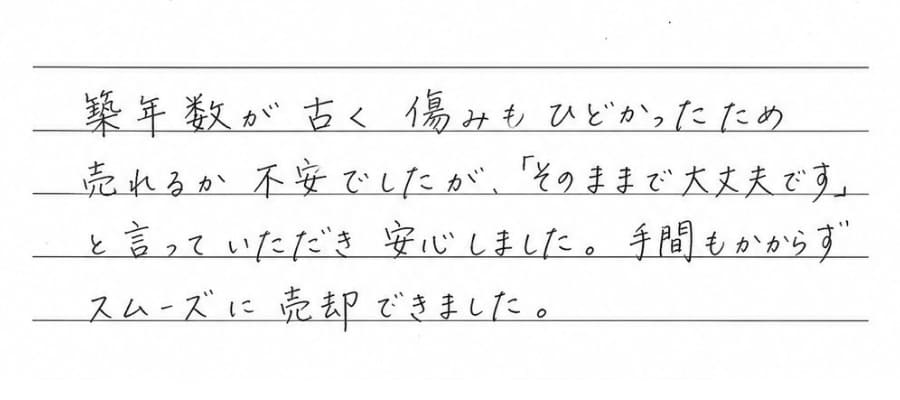 築年数が古く 傷みもひどかったため
売れるか不安でしたが、「そのままで大丈夫です」
と言っていただき 安心しました。手間もかからず
スムーズに売却できました。